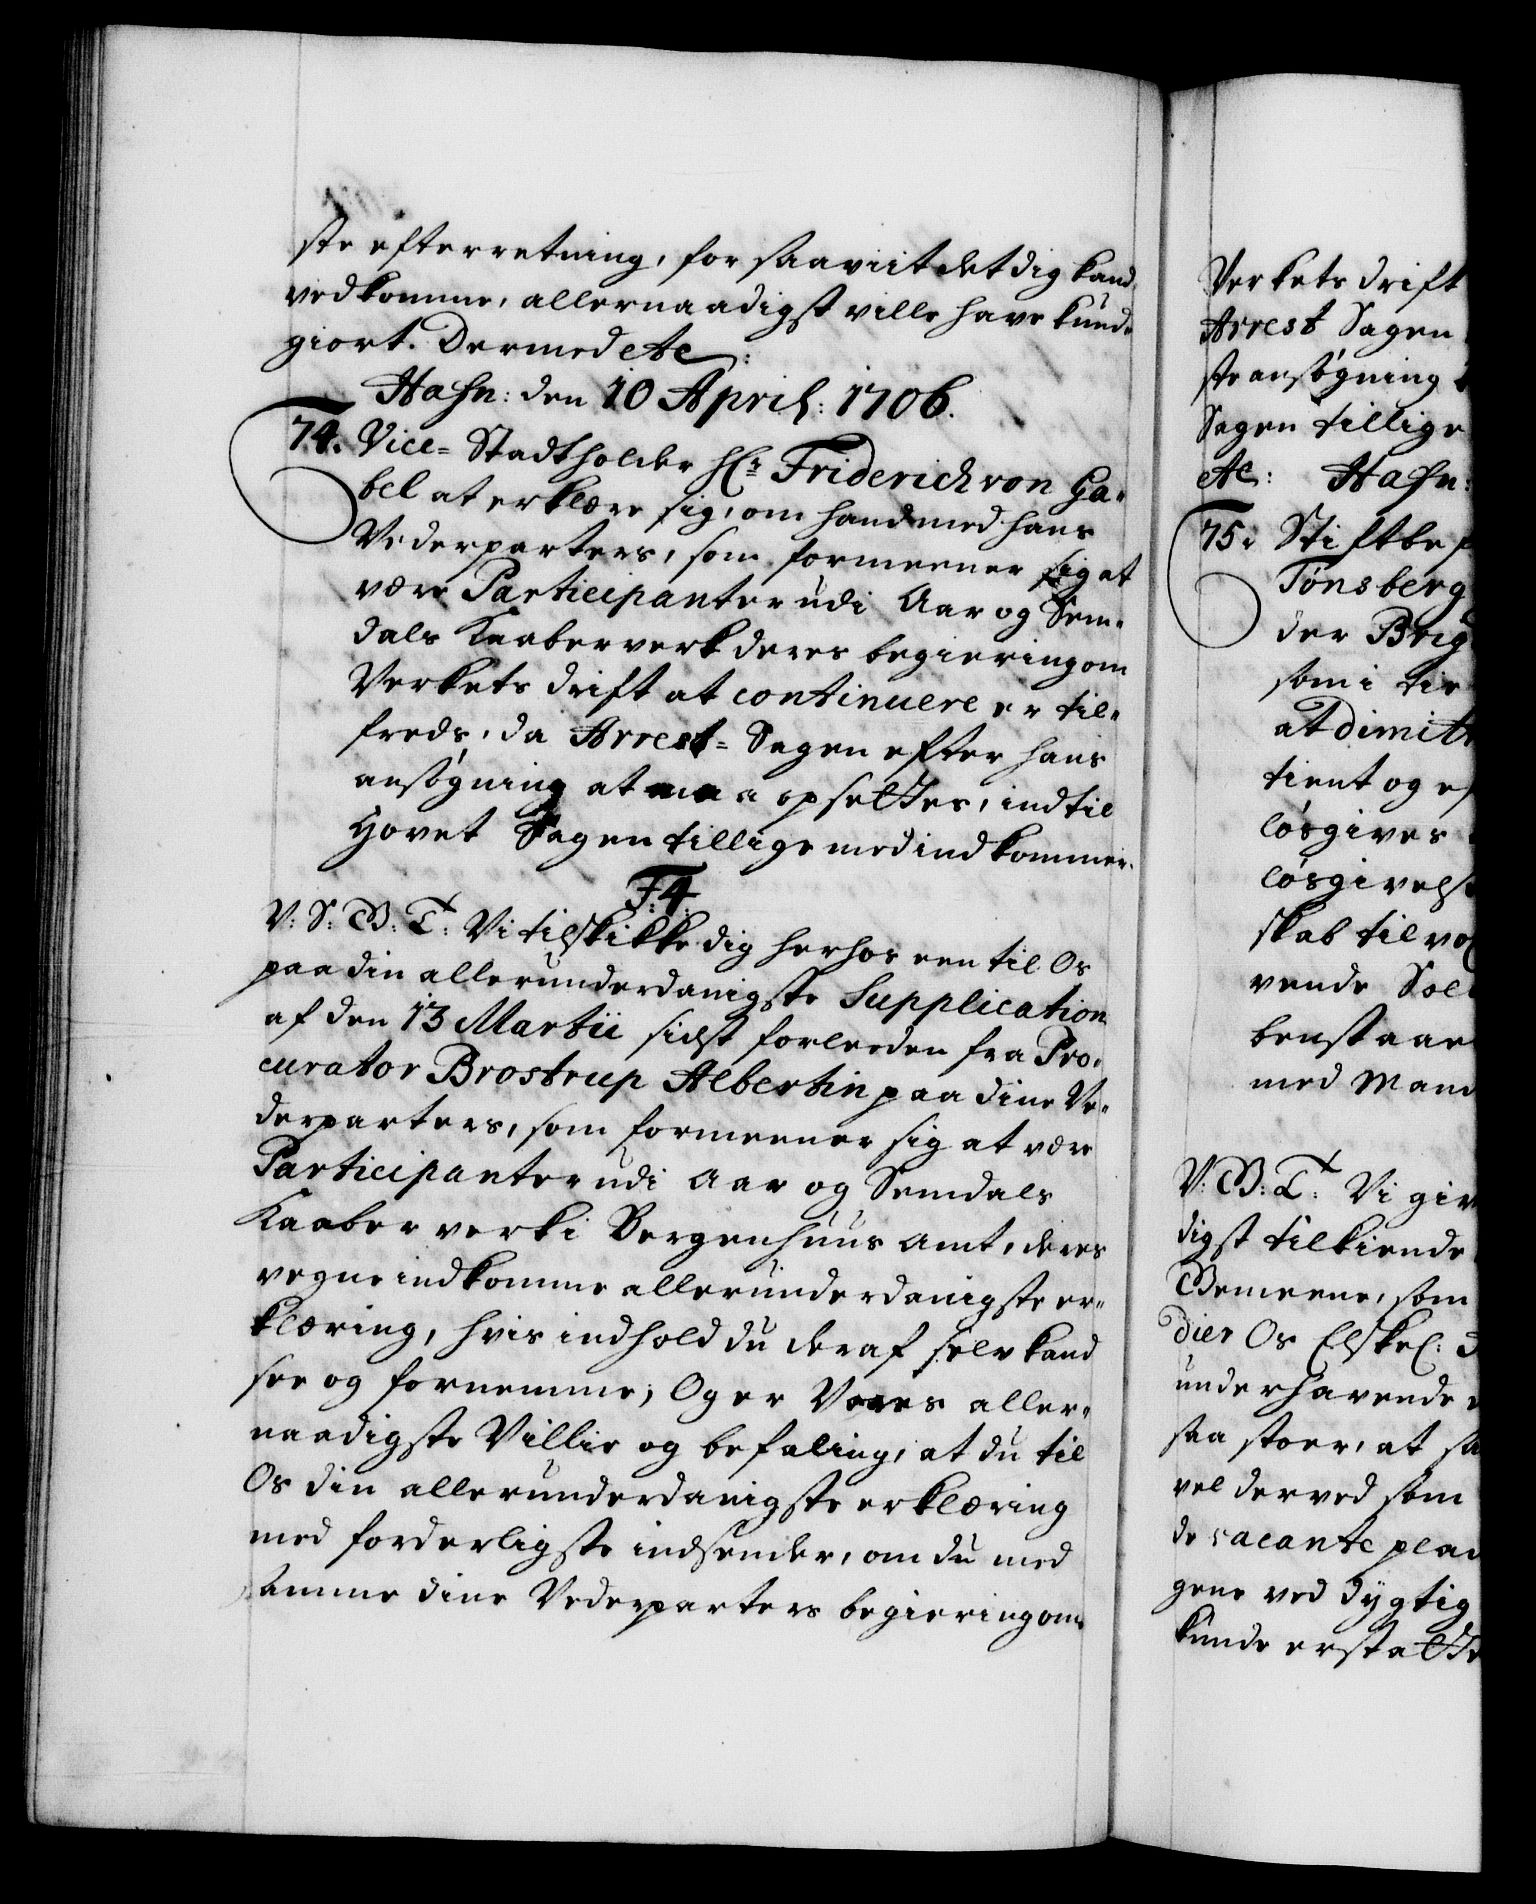 ste efterretning, for saaviit det dig kand
vedkomme, allernaadigst ville have kund-
giort. Dermed etc:
Hafn: den 10 April: 1706.
74. Vice- Stadtholder Hr: Friderich von Ga-
bel at erklære sig, om hand med hans
Vederparters, som formeener sig at
være Participanter udi Aar og Sem-
dals Kaaberverk deres begiering om
Verkets drift at continuere er til-
freds, da Arrest- Sagen efter hans
ansøgning at maa opsettes, indtil
Hovet Sagen tillige med indkommer.
F. 4.
V: S: G: T: Vi tilskikke dig herhos een til Os
paa din allerunderdanigste Supplication
af den 13 Martii sidst forleeden fra Pro-
curator Brostrup Albertin paa dine Ve-
derparters, som formeener sig at være
Participanter udi Aar og Semdals
Kaaberverk i Bergenhuus Amt, deres
vegne indkomme allerunderdanigste er-
klæring, hvis indhold du deraf selv kand
see og fornemme; Og er Vores aller-
naadigste Villie og befaling, at du til
Os din allerunderdanigste erklæring
med forderligste indsender, om du med
samme dine Vederparters begiering om
Verkets drift
Arrest Sagen
ste ansøgning
Sagen tillige
etc: Hafn:
75. Stiftbef
Tønsberg
der Brig
som i tie
at dimitt
tient og ef
løsgives
løsgivelse
skab til vo
vende Sol
benstaae
med Mand
V: G: T: Vi giv
digst tilkiende
Gemeene, som
dier Os Elskel: 
underhavende
saa stoer, at sa
vel derved som
de vacante plad
gene ved dygtig
kunde erstatte